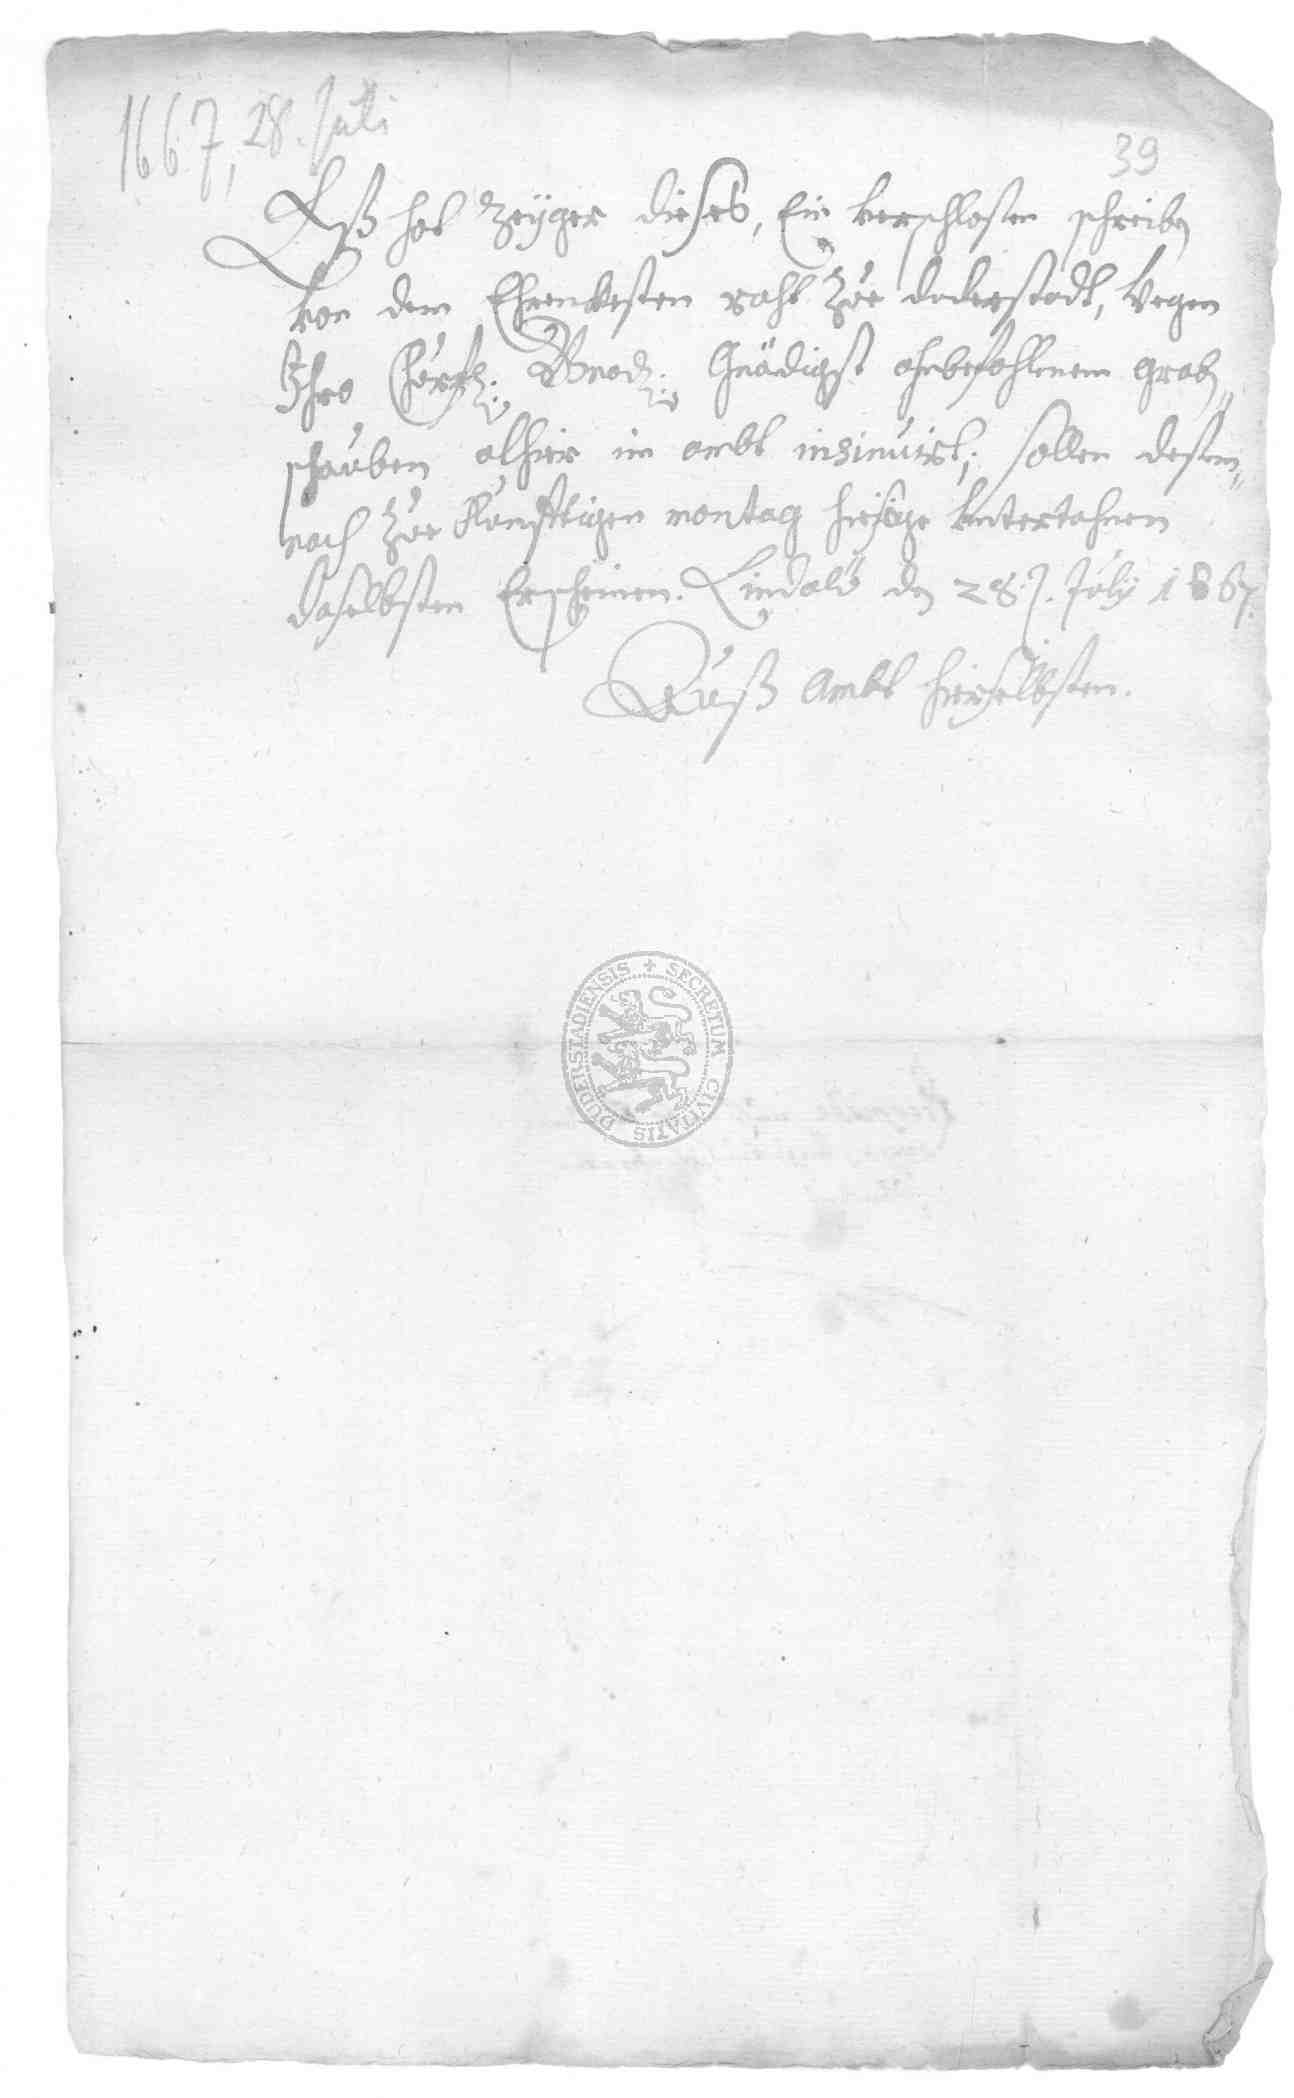 1667, 28. Juli
39
Eß hat Zeyger dieses, Ein verschlosten schreiben
von dem Ehrenvesten raht Zue Duderstadt, wegen
Ihro Churfl. Gnad. Gnädigst ahnbefohlenem grab,,
schauben alhier im ambt insinuirt; sollen desem,,
nach Zue Künfftigen montag hiesige Untertahnen
daselbsten Erscheinen. Lindaw den 28. July 1667.
Auß Ambt hierselbsten.
DUDERSTADIENSIS + SECRETUM CIVITATIS